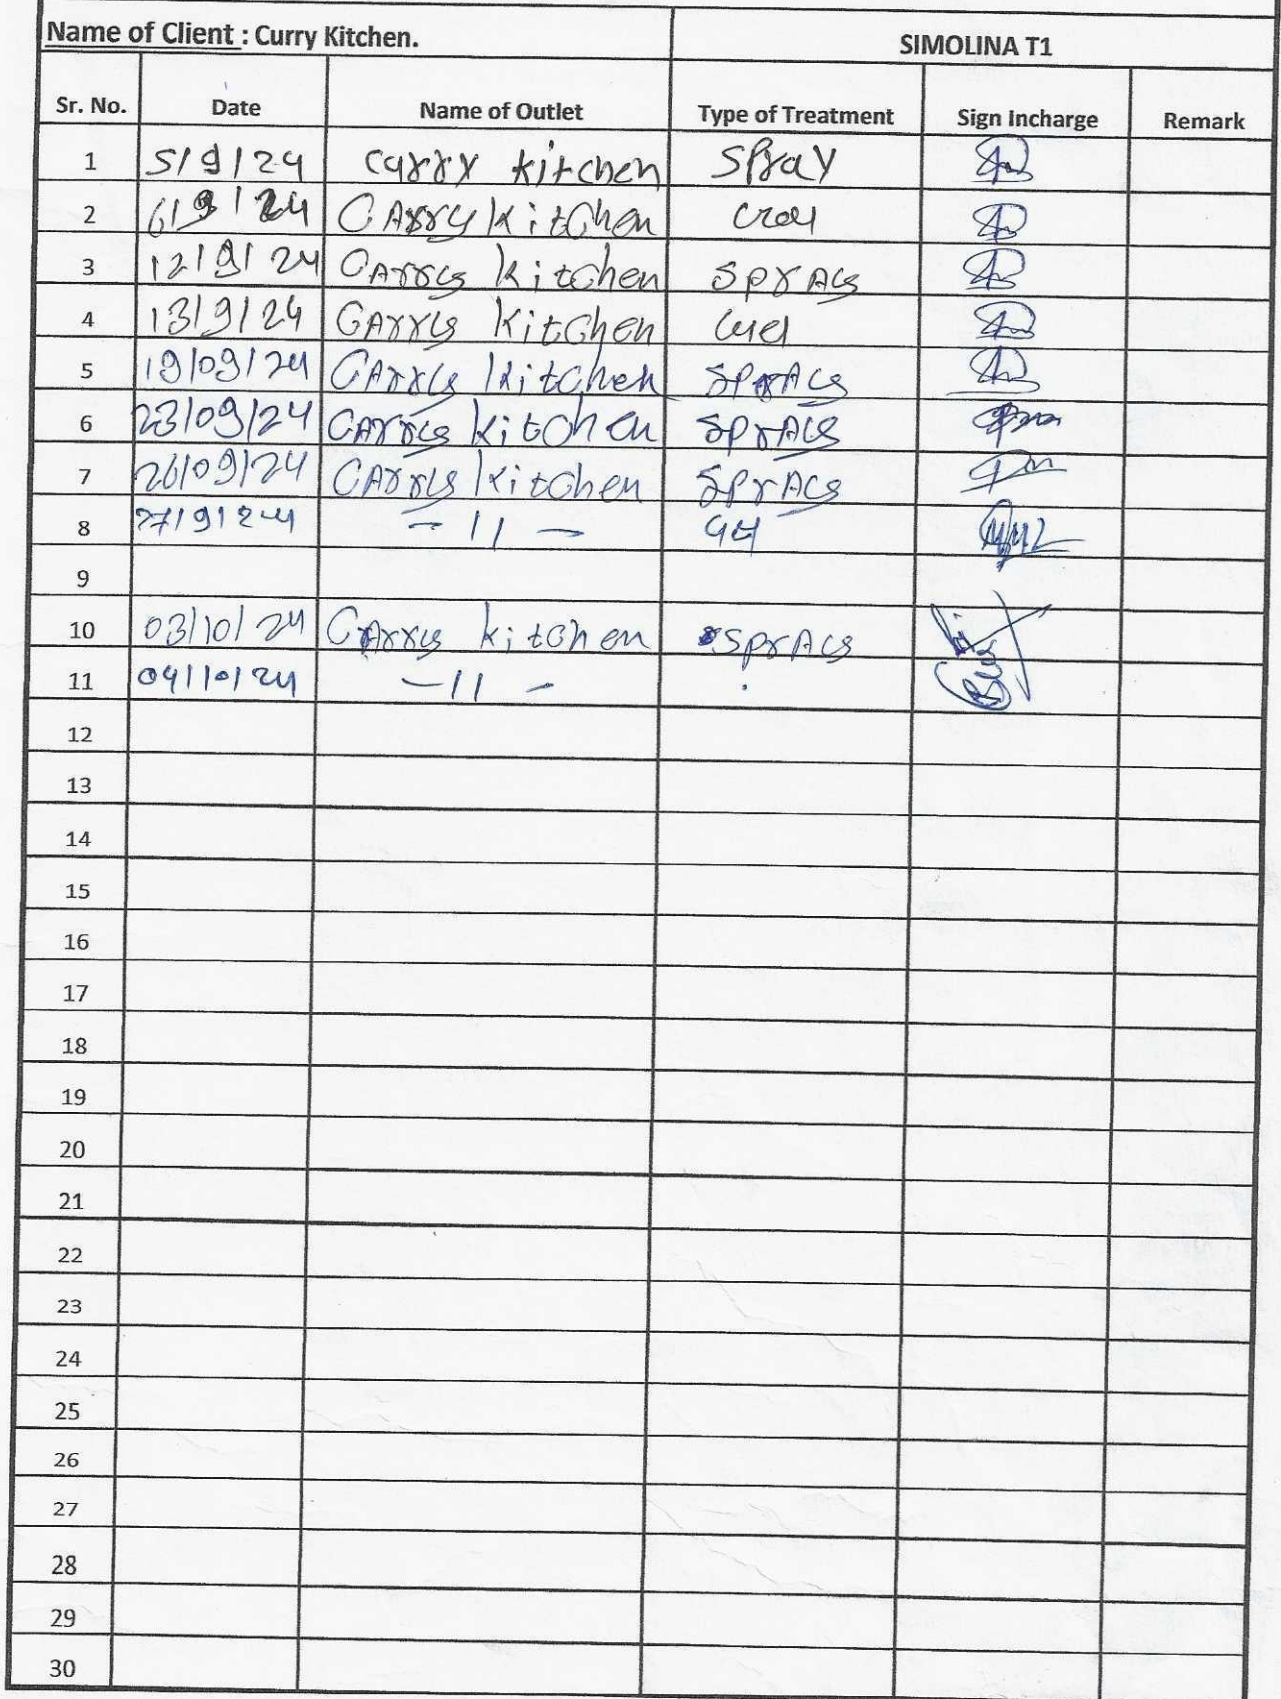 Name of Client : Curry Kitchen. SIMOLINA T1
Sr. No. Date Name of Outlet Type of Treatment Sign Incharge Remark
1 5/9/24 Curry kitchen Spray
2 6/9/24 CArry kitchen
3 12/9/24 CArry kitchen sprAy
4 13/9/24 CArry kitchen
5 19/09/24 CArry kitchen sprAy
6 23/09/24 CArry kitchen sprAy
7 26/09/24 CArry kitchen sprAy
8 27/9/24 - 11 -
9
10 03/10/24 CArry kitchen sprAy
11 04/10/24 - 11 -
12
13
14
15
16
17
18
19
20
21
22
23
24
25
26
27
28
29
30